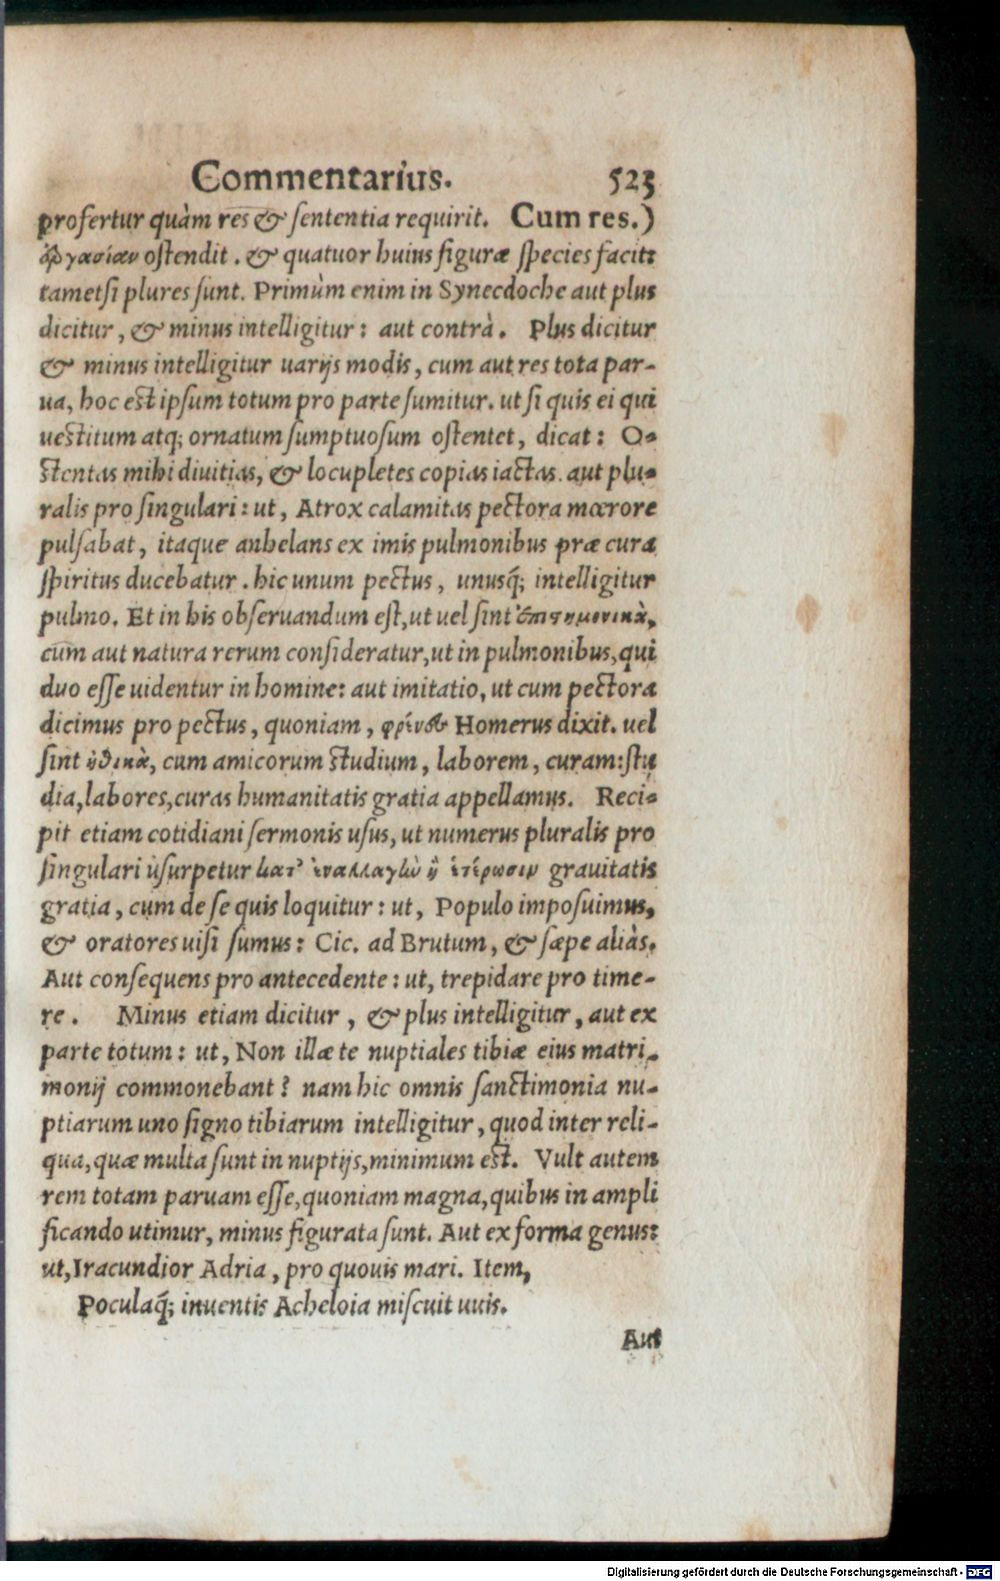 Commentarius. 523
profertur quàm res & sententia requirit. Cum res.)
ἐργασίαν ostendit. & quatuor huius figuræ species facit:
tametsi plures sunt. Primùm enim in Synecdoche aut plus
dicitur, & minus intelligitur: aut contrà. Plus dicitur
& minus intelligitur uarijs modis, cum aut res tota par-
ua, hoc est ipsum totum pro parte sumitur. ut si quis ei qui
uestitum atq; ornatum sumptuosum ostentet, dicat: O-
stentas mihi diuitias, & locupletes copias iactas. aut plu-
ralis pro singulari: ut, Atrox calamitas pectora mœrore
pulsabat, itaque anhelans ex imis pulmonibus præ cura
spiritus ducebatur. hic unum pectus, unusq́; intelligitur
pulmo. Et in his obseruandum est, ut uel sint ἐπιστημονικὰ,
cùm aut natura rerum consideratur, ut in pulmonibus, qui
duo esse uidentur in homine: aut imitatio, ut cum pectora
dicimus pro pectus, quoniam, φρένας Homerus dixit. uel
sint ἠθικὰ, cum amicorum studium, laborem, curam: stu
dia, labores, curas humanitatis gratia appellamus. Reci-
pit etiam cotidiani sermonis usus, ut numerus pluralis pro
singulari usurpetur κατ' ἐναλλαγὼ ἢ ἑτέρωσιν grauitatis
gratia, cum de se quis loquitur: ut, Populo imposuimus,
& oratores uisi sumus: Cic. ad Brutum, & sæpe aliàs.
Aut consequens pro antecedente: ut, trepidare pro time-
re. Minus etiam dicitur, & plus intelligitur, aut ex
parte totum: ut, Non illæ te nuptiales tibiæ eius matri-
monij commonebant? nam hic omnis sanctimonia nu-
ptiarum uno signo tibiarum intelligitur, quod inter reli-
qua, quæ multa sunt in nuptijs, minimum est. Vult autem
rem totam paruam esse, quoniam magna, quibus in ampli
ficando utimur, minus figurata sunt. Aut ex forma genus:
ut, Iracundior Adria, pro quouis mari. Item,
Poculaq́; inuentis Acheloia miscuit uuis.
Aut
Digitalisierung gefördert durch die Deutsche Forschungsgemeinschaft - DFG